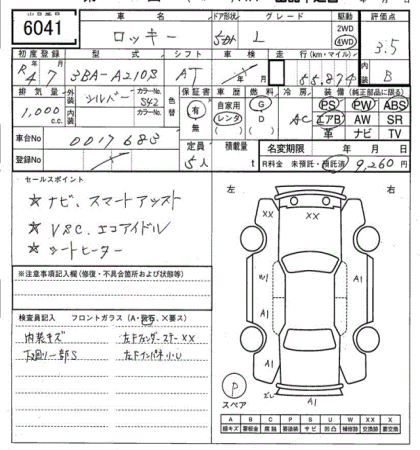 6041
車名
ドア形状
グレード
駆動
評価点
ロッキー
5
L
2WD
4WD
3.5
初度登録
型式
シフト
車検
走行(km・マイル)
内装
R4/7
3BA-A210S
AT
年
月
日
55,874
B
排気量
外装
シルバー
カラーNo.
S42
色替
保証書
車歴
燃料
冷房
装備(純正部品に限る)
1,000
c.c.
内装
カラーNo.
有・無
自家用
レンタ
G
D
AC
PS
PW
ABS
エアB
AW
SR
革
ナビ
TV
車台No
0017683
定員
5人
積載量
t
名変期限
年
月
日
登録No
R料金
未預託・預託済
9,260円
セールスポイント
★ナビ、スマートアシスト
★VSC、エコアイドル
★シートヒーター
左
右
XX
XX
W1
A1
A1
A1
A1
※注意事項記入欄(修復・不具合箇所および状態等)
検査員記入
フロントガラス(A・飛石、×要ス)
内装キズ
左Fフェンダーステー××
下廻り一部S
左FインパネリU
P
スペア
A
B
C
P
S
U
W
XX
X
線キズ
要板金
腐蝕
要塗装
サビ
凹凸
補修跡
交換跡
要交換